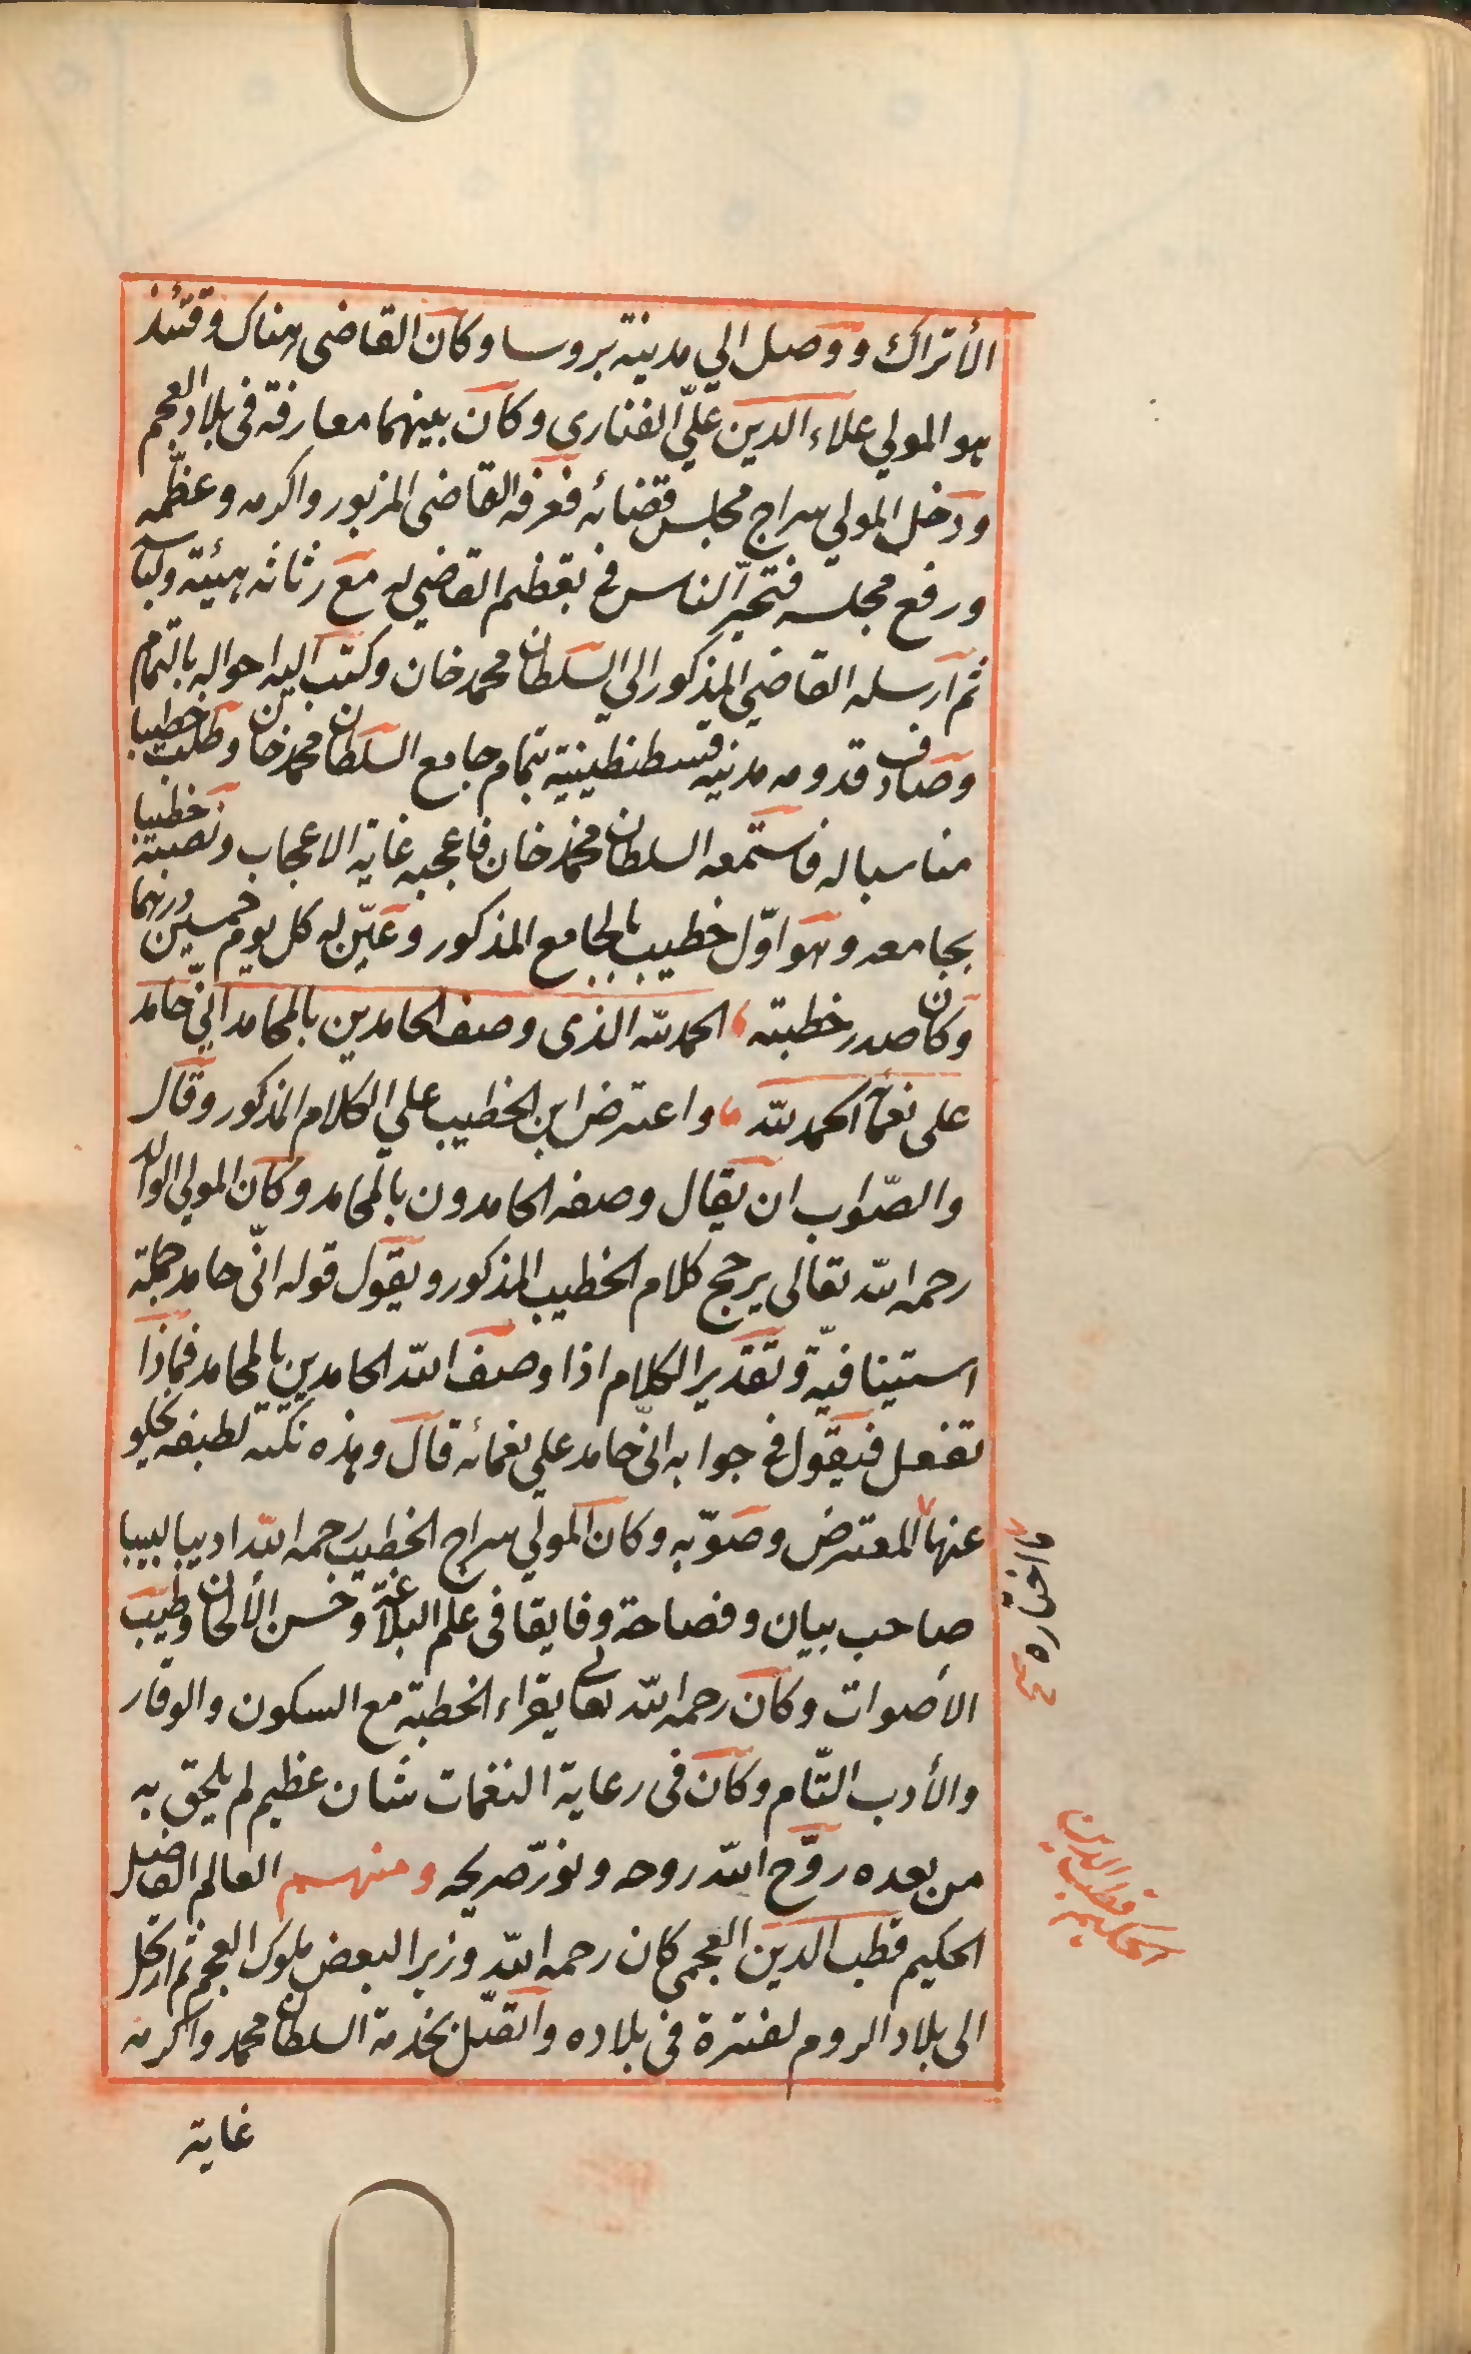 الأتراك ووصل الي مدينة بروسا وكان القاضى هناك وقتئذ
هو المولي علاء الدين علىّ الفنارى وكان بينهما معارفة فى بلاد العجم
ودخل المولي سراج مجلس قضائه فعرفه القاضى المزبور واكرمه وعظّمه
ورفع مجلسه فتحيّر الناس فى تعظيم القاضي له مع رثاثة هيئته ولباسه
ثم ارسله القاضي المذكور الي السلطان محمد خان وكتب اليه احواله بالتمام
وصادف قدومه مدينة قسطنطينية تمام جامع السلطان محمد خان وطلب خطيبا
مناسبا له فاستمعه السلطان محمد خان فاعجبه غاية الاعجاب ونصبه خطيبا
بجامعه وهو اوّل خطيب بالجامع المذكور وعيّن له كل يوم خمسين درهما
وكان صدر خطبته الحمد لله الذى وصف الحامدين بالمحامد انّي حامد
على نعمآ الحمد لله واعترض ابن الخطيب علي الكلام المذكور وقال
والصّواب ان يقال وصفه الحامدون بالمحامد وكان المولي الوالد
رحمه الله تعالى يرجح كلام الخطيب المذكور ويقول قوله انّى حامد جملة
استينافيّة وتقدير الكلام اذا وصف الله الحامدين بالمحامد فماذا
تفعل فيقول فى جوابه انّى حامد علي نعمائه قال وهذه نكتة لطيفة يخلو
عنها المعترض وصوّبه وكان المولي سراج الخطيب رحمه الله اديبا لبيبا
صاحب بيان وفصاحة وفايقا فى علم البلاغة وحسن الألحان وطيب
الأصوات وكان رحمه الله تعالى يقراء الخطبة مع السكون والوقار
والأدب التّام وكان فى رعاية النغمات شان عظيم لم يلحق به
من بعده روّح الله روحه ونوّر ضريحه ومنهم العالم الفاضل
الحكيم قطب الدين العجمى كان رحمه الله وزيرا لبعض ملوك العجم ثم ارتحل
الى بلاد الروم لفترة فى بلاده واتّصل بخدمة السلطان محمد واكرمه
غاية
ما اختاره
الحكيم قطب الدين